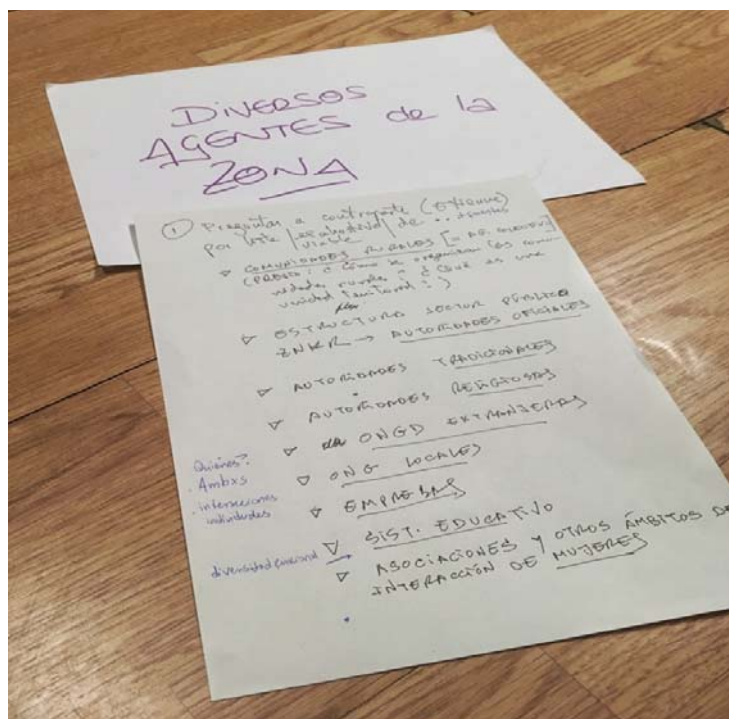 DIVERSOS
AGENTES de la
ZONA
① Preguntar a contraparte (
por este | viable | de
▽ COMUNIDADES RURALES [
(PREVIO: ¿Cómo se organizan las comu-
nidades rurales? ¿Qué es una
unidad familiar?)
▽ ESTRUCTURA SECTOR PÚBLICO
ZNKR → AUTORIDADES OFICIALES
▽ AUTORIDADES TRADICIONALES
▽ AUTORIDADES RELIGIOSAS
▽ ONGD EXTRANJERAS
▽ ONG LOCALES
▽ EMPRESAS
▽ SIST. EDUCATIVO
▽ ASOCIACIONES Y OTROS ÁMBITOS DE
INTERACCIÓN DE MUJERES
Quiénes?
. Ambxs
. intersecciones
individuales
diversidad funcional